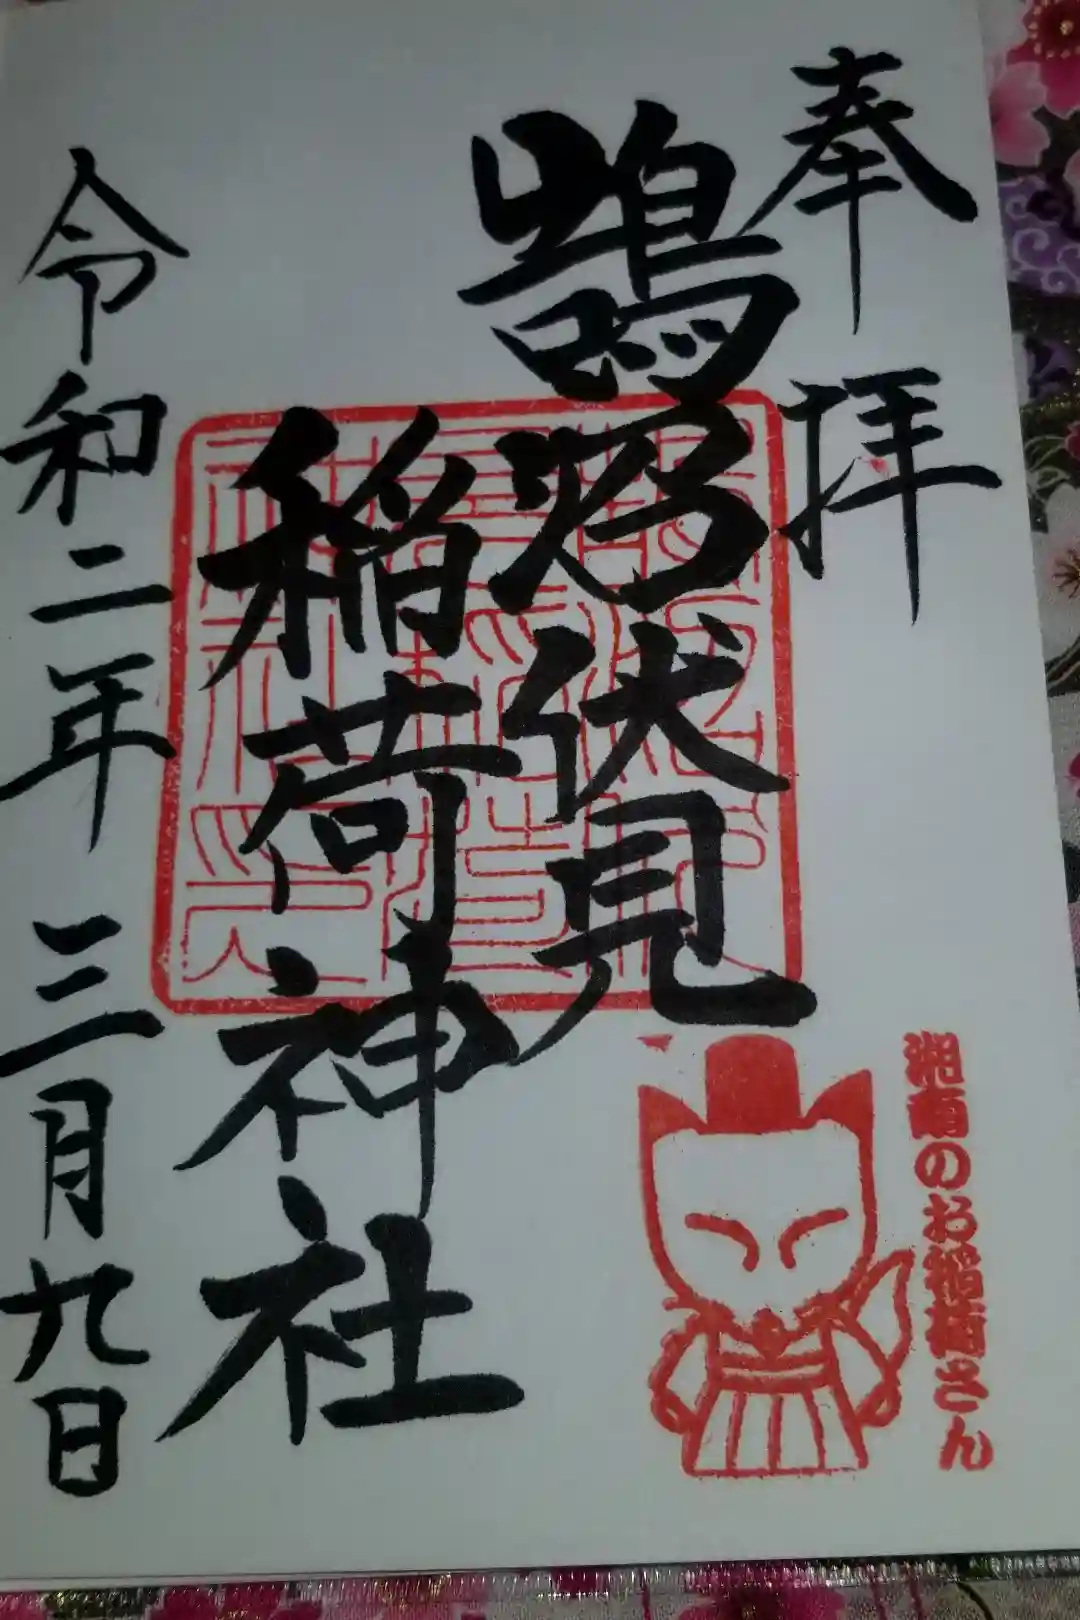 奉拝
鵠沼伏見
稲荷神社
令和二年三月九日
湘南のお稲荷さん